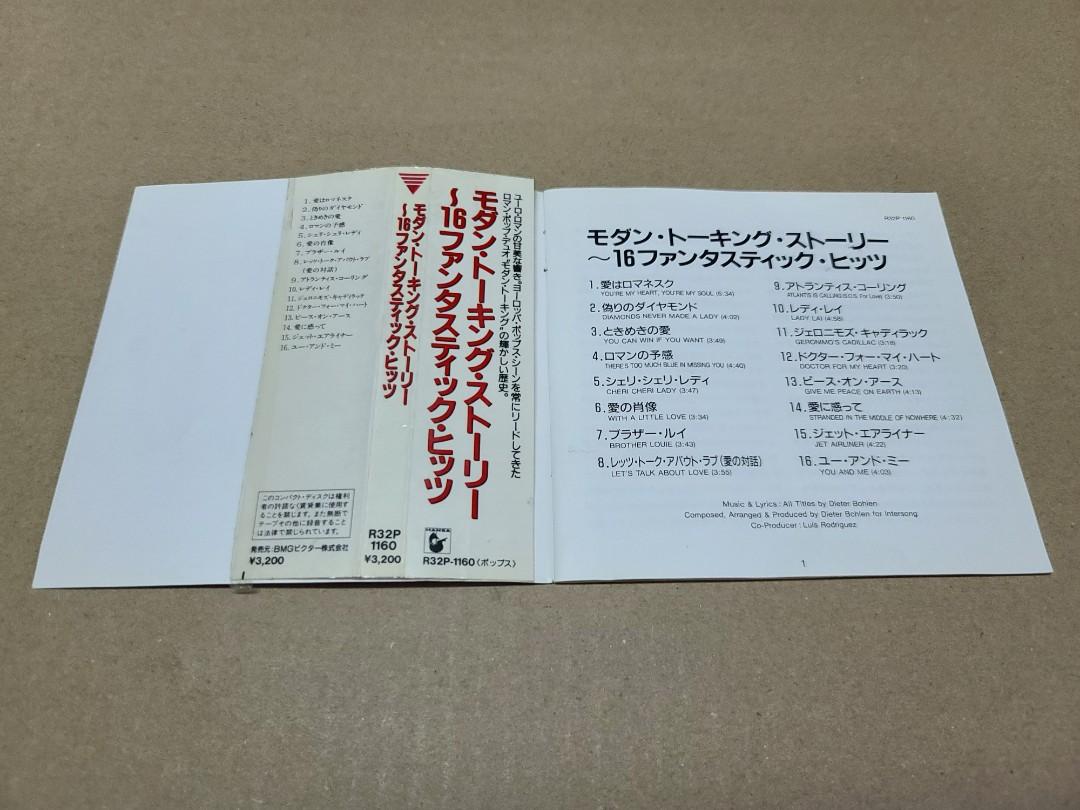 1. 愛はロマネスク
2. 偽りのダイヤモンド
3. ときめきの愛
4. ロマンの予感
5. シェリ・シェリ・レディ
6. 愛の肖像
7. ブラザー・ルイ
8. レッツ・トーク・アバウト・ラブ
(愛の対話)
9. アトランティス・コーリング
10. レディ・レイ
11. ジェロニモズ・キャディラック
12. ドクター・フォー・マイ・ハート
13. ピース・オン・アース
14. 愛に惑って
15. ジェット・エアライナー
16. ユー・アンド・ミー
このコンパクト・ディスクは権利
者の許諾なく賃貸業に使用す
ることを禁じます。また無断で
テープその他に録音すること
は法律で禁じられています。
発売元:BMGビクター株式会社
¥3,200
モダン・トーキング・ストーリー
〜16ファンタスティック・ヒッツ
R32P
1160
¥3,200
ユーロ・ロマンの甘美な響き。ヨーロッパ・ポップス・シーンを常にリードしてきた
ロマン・ポップ・デュオ“モダン・トーキング”の輝かしい歴史。
モダン・トーキング・ストーリー
〜16ファンタスティック・ヒッツ
HANSA
R32P-1160〈ポップス〉
R32P-1160
モダン・トーキング・ストーリー
〜16ファンタスティック・ヒッツ
1. 愛はロマネスク
YOU'RE MY HEART, YOU'RE MY SOUL (5:34)
2. 偽りのダイヤモンド
DIAMONDS NEVER MADE A LADY (4:02)
3. ときめきの愛
YOU CAN WIN IF YOU WANT (3:49)
4. ロマンの予感
THERE'S TOO MUCH BLUE IN MISSING YOU (4:40)
5. シェリ・シェリ・レディ
CHERI CHERI LADY (3:47)
6. 愛の肖像
WITH A LITTLE LOVE (3:34)
7. ブラザー・ルイ
BROTHER LOUIE (3:43)
8. レッツ・トーク・アバウト・ラブ(愛の対話)
LET'S TALK ABOUT LOVE (3:55)
9. アトランティス・コーリング
ATLANTIS IS CALLING (S.O.S. For Love) (3:50)
10. レディ・レイ
LADY LAI (4:58)
11. ジェロニモズ・キャディラック
GERONIMO'S CADILLAC (3:18)
12. ドクター・フォー・マイ・ハート
DOCTOR FOR MY HEART (3:20)
13. ピース・オン・アース
GIVE ME PEACE ON EARTH (4:13)
14. 愛に惑って
STRANDED IN THE MIDDLE OF NOWHERE (4:32)
15. ジェット・エアライナー
JET AIRLINER (4:22)
16. ユー・アンド・ミー
YOU AND ME (4:03)
Music & Lyrics : All Titles by Dieter Bohlen
Composed, Arranged & Produced by Dieter Bohlen for Intersong
Co-Producer : Luis Rodriguez
1